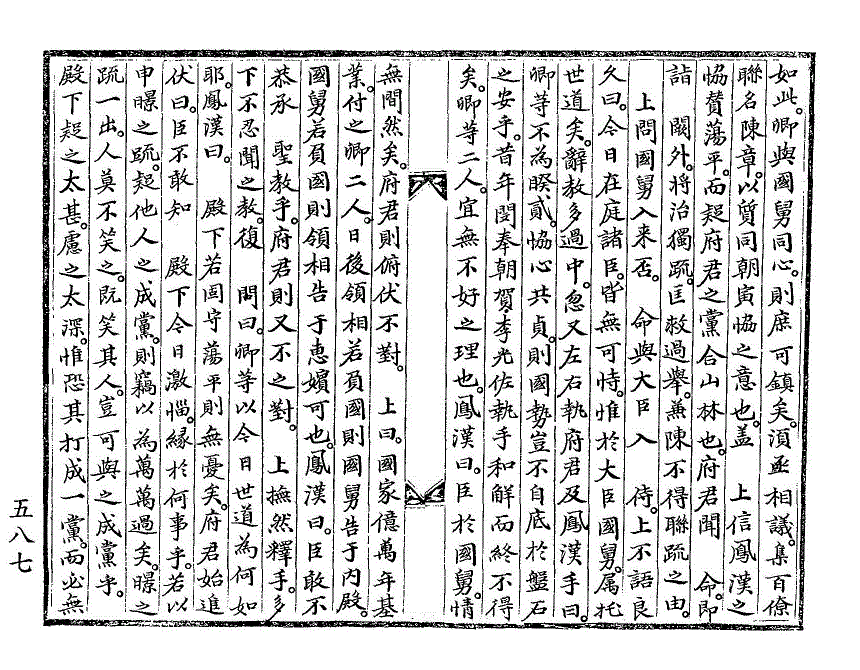 如此。卿與國舅同心。則庶可鎮矣。須丞相議。集百僚
聯名陳章。以質同朝寅協之意也。盖　上信鳳漢之
協贊蕩平。而疑府君之黨合山林也。府君聞　命。卽
詣　闕外。將治獨䟽。匡救過擧。兼陳不得聯䟽之由。
上問國舅入来否。　命與大臣入　侍。上不語良
久曰。今日在庭諸臣。皆無可恃。惟於大臣國舅。属托
世道矣。辭敎多過中。忽又左右執府君及鳳漢手曰。
卿等不為睽貳。恊心共貞。則國勢豈不自底於盤石
之安乎。昔年閔奉朝賀,李光佐執手和解。而終不得
矣。卿等二人。宜無不好之理也。鳳漢曰。臣於國舅。情
無間然矣。府君則俯伏不對。　上曰。國家億萬年基
業。付之卿二人。日後領相若負國則國舅告于内殿。
國舅若負國則領相告于惠嬪可也。鳳漢曰。臣敢不
恭承　聖敎乎。府君則又不之對。　上撫然釋手。多
下不忍聞之敎。復　問曰。卿等以今日世道為何如
耶。鳳漢曰。　殿下若固守蕩平則無憂矣。府君始追
伏曰。臣不敢知　殿下今日激惱。緣於何事乎。若以
申暻之䟽。疑他人之成黨。則竊以為萬萬過矣。暻之
䟽一出。人莫不笑之。旣笑其人。豈可與之成黨乎。
殿下疑之太甚。慮之太深。惟恐其打成一黨。而必無
五八七